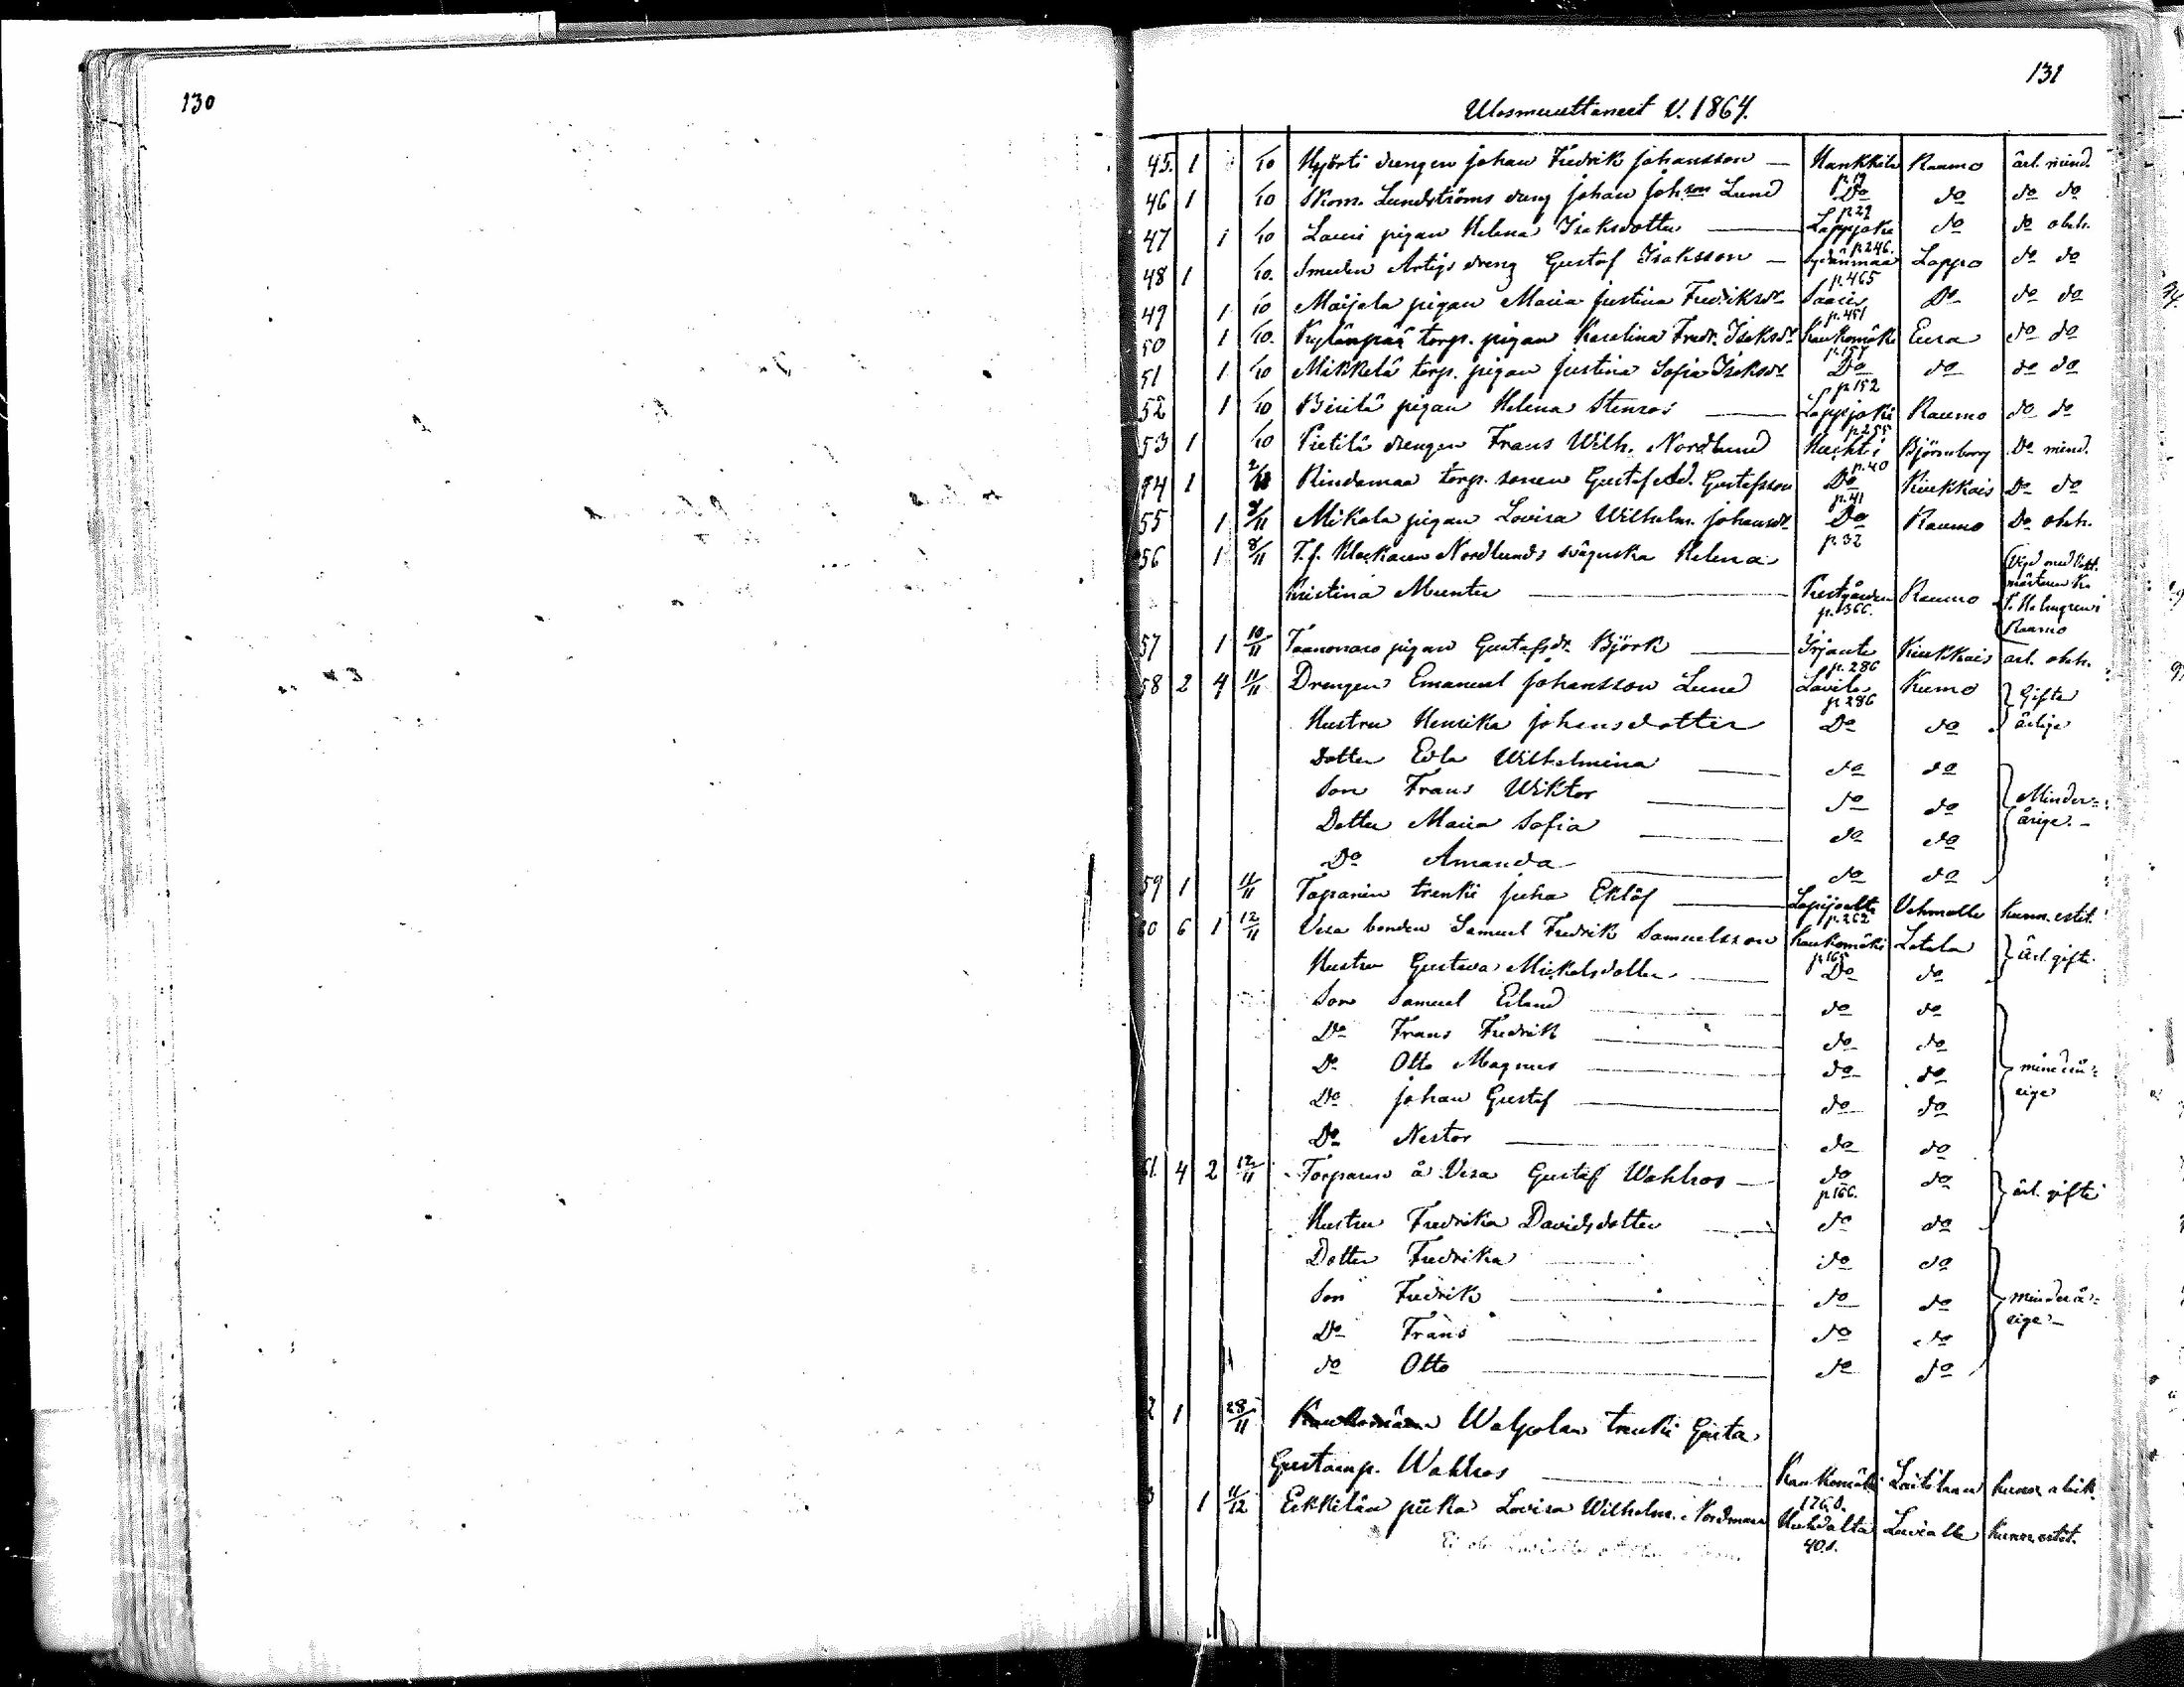 130
131
Ulosmuuttaneet V. 1864.
45. 1 /10 Hyörti drengen Johan Fredrik Johansson — Hankkila p.19 Raumo ärl. mind.
46 1 /10 Skom. Lundströms dreng Johan Johson Lund Do p.29 do do do
47 1 /10 Lauri pigan Helena Isaksdotter — Lappjoki p.246. do do obeh.
48 1 /10. Smeden Artigs dreng Gustaf Isaksson — Sydänmaa p.465 Lappo do do
49 1 /10 Maijala pigan Maria Justina Fredriksdr Saaris p.451 Do do do
50 1 /10. Kylänpää torp. pigan Karolina Fredr. Isaksdr Kaukomäki p.157 Eura do do
51 1 /10 Mikkelä torp. pigan Justina Sofia Isaksdr Do p.152 do do do
52 1 /10 Birilä pigan Helena Stenros — Lappjoki p.255 Raumo do do
53 1 /10 Pietilä drengen Frans Wilh. Nordlund Huhti p.40 Björneborg Do mind.
54 1 2/11 Rindamaa torp. sonen Gustaf Ad. Gustafsson Do p.41 Kiukkais Do do
55 1 8/11 Mikola pigan Lovisa Wilhelm. Johansdr Do p.32 Raumo Do obeh.
56 1 8/11 F.f. Klockaren Nordlunds svägerska Helena (Vigd med Vakt-
Kristina Munter — Prestgården p.366. Raumo mästaren K. F. Holmgren i Raumo
57 1 10/11 Taanonaro pigan Gustafsdr Björk — Irjante p.286 Kiukkais ärl. obeh.
58 2 4 11/11 Drengen Emanuel Johansson Lund Lavila p.286 Kumo } Gifta
Hustru Henrika Johansdotter Do do ärlige
Dotter Edla Wilhelmina — do do
Son Frans Wiktor — do do } Minder-
Dotter Maria Sofia — do do årige. –
Do Amanda — do do
59 1 11/11 Tapanin trenki Juha Eklöf — Lapijoelta p.262 Vehmalle kunn. estet.
60 6 1 12/11 Vesa bonden Samuel Fredrik Samuelsson Kaukomäki p.165 Letala } Ärl. gifte.
Hustru Gustava Mickelsdotter — Do do
Son Samuel Erland — do do
Do Frans Fredrik — do do
Do Otto Magnus — do do } minderå-
Do Johan Gustaf — do do rige
Do Nestor — do do
61. 4 2 12/11 Torparen å Vesa Gustaf Wahlros — do p.166. do } ärl. gifte
Hustru Fredrika Davidsdotter — do do
Dotter Fredrika — do do
Son Fredrik — do do } minderå-
Do Frans — do do rige –
do Otto — do do
2 1 28/11 Walpolan trenki Gusta
Gustaanp. Wahlros — Kaukomäki 176 s. Laitilaan kunn.
3 1 11/12 Eekkilän piika Lovisa Wilhelm. Nordman Huhdalta 40 s. Lavialle kunn. estet.